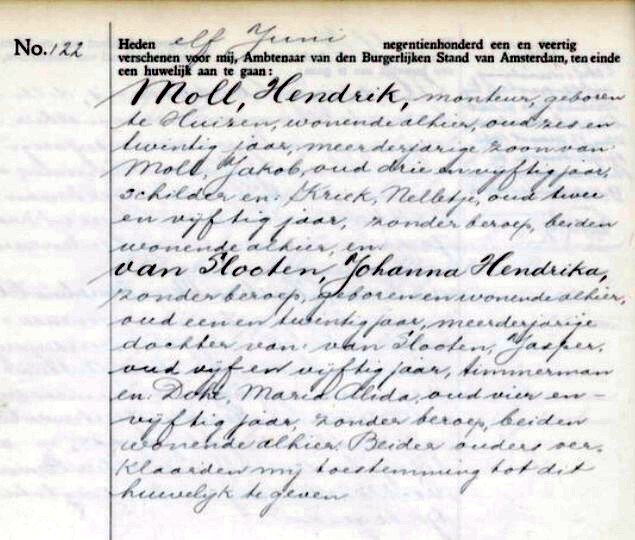 No. 122
Heden elf Juni negentienhonderd een en veertig
verschenen voor mij, Ambtenaar van den Burgerlijken Stand van Amsterdam, ten einde
een huwelijk aan te gaan:
Moll, Hendrik, monteur, geboren
te Huizen, wonende alhier, oud zes en
twintig jaar, meerderjarige zoon van
Moll, Jakob, oud drie en vijftig jaar,
schilder en: Kriek, Nelletje, oud twee
en vijftig jaar, zonder beroep, beiden
wonende alhier, en
van Slooten, Johanna Hendrika,
zonder beroep, geboren en wonende alhier,
oud een en twintig jaar, meerderjarige
dochter van: van Slooten, Jasper,
oud vijf en vijftig jaar, timmerman
en: Dohr, Maria Alida, oud vier en -
vijftig jaar, zonder beroep, beiden
wonende alhier. Beider ouders ver-
klaarden mij toestemming tot dit
huwelijk te geven